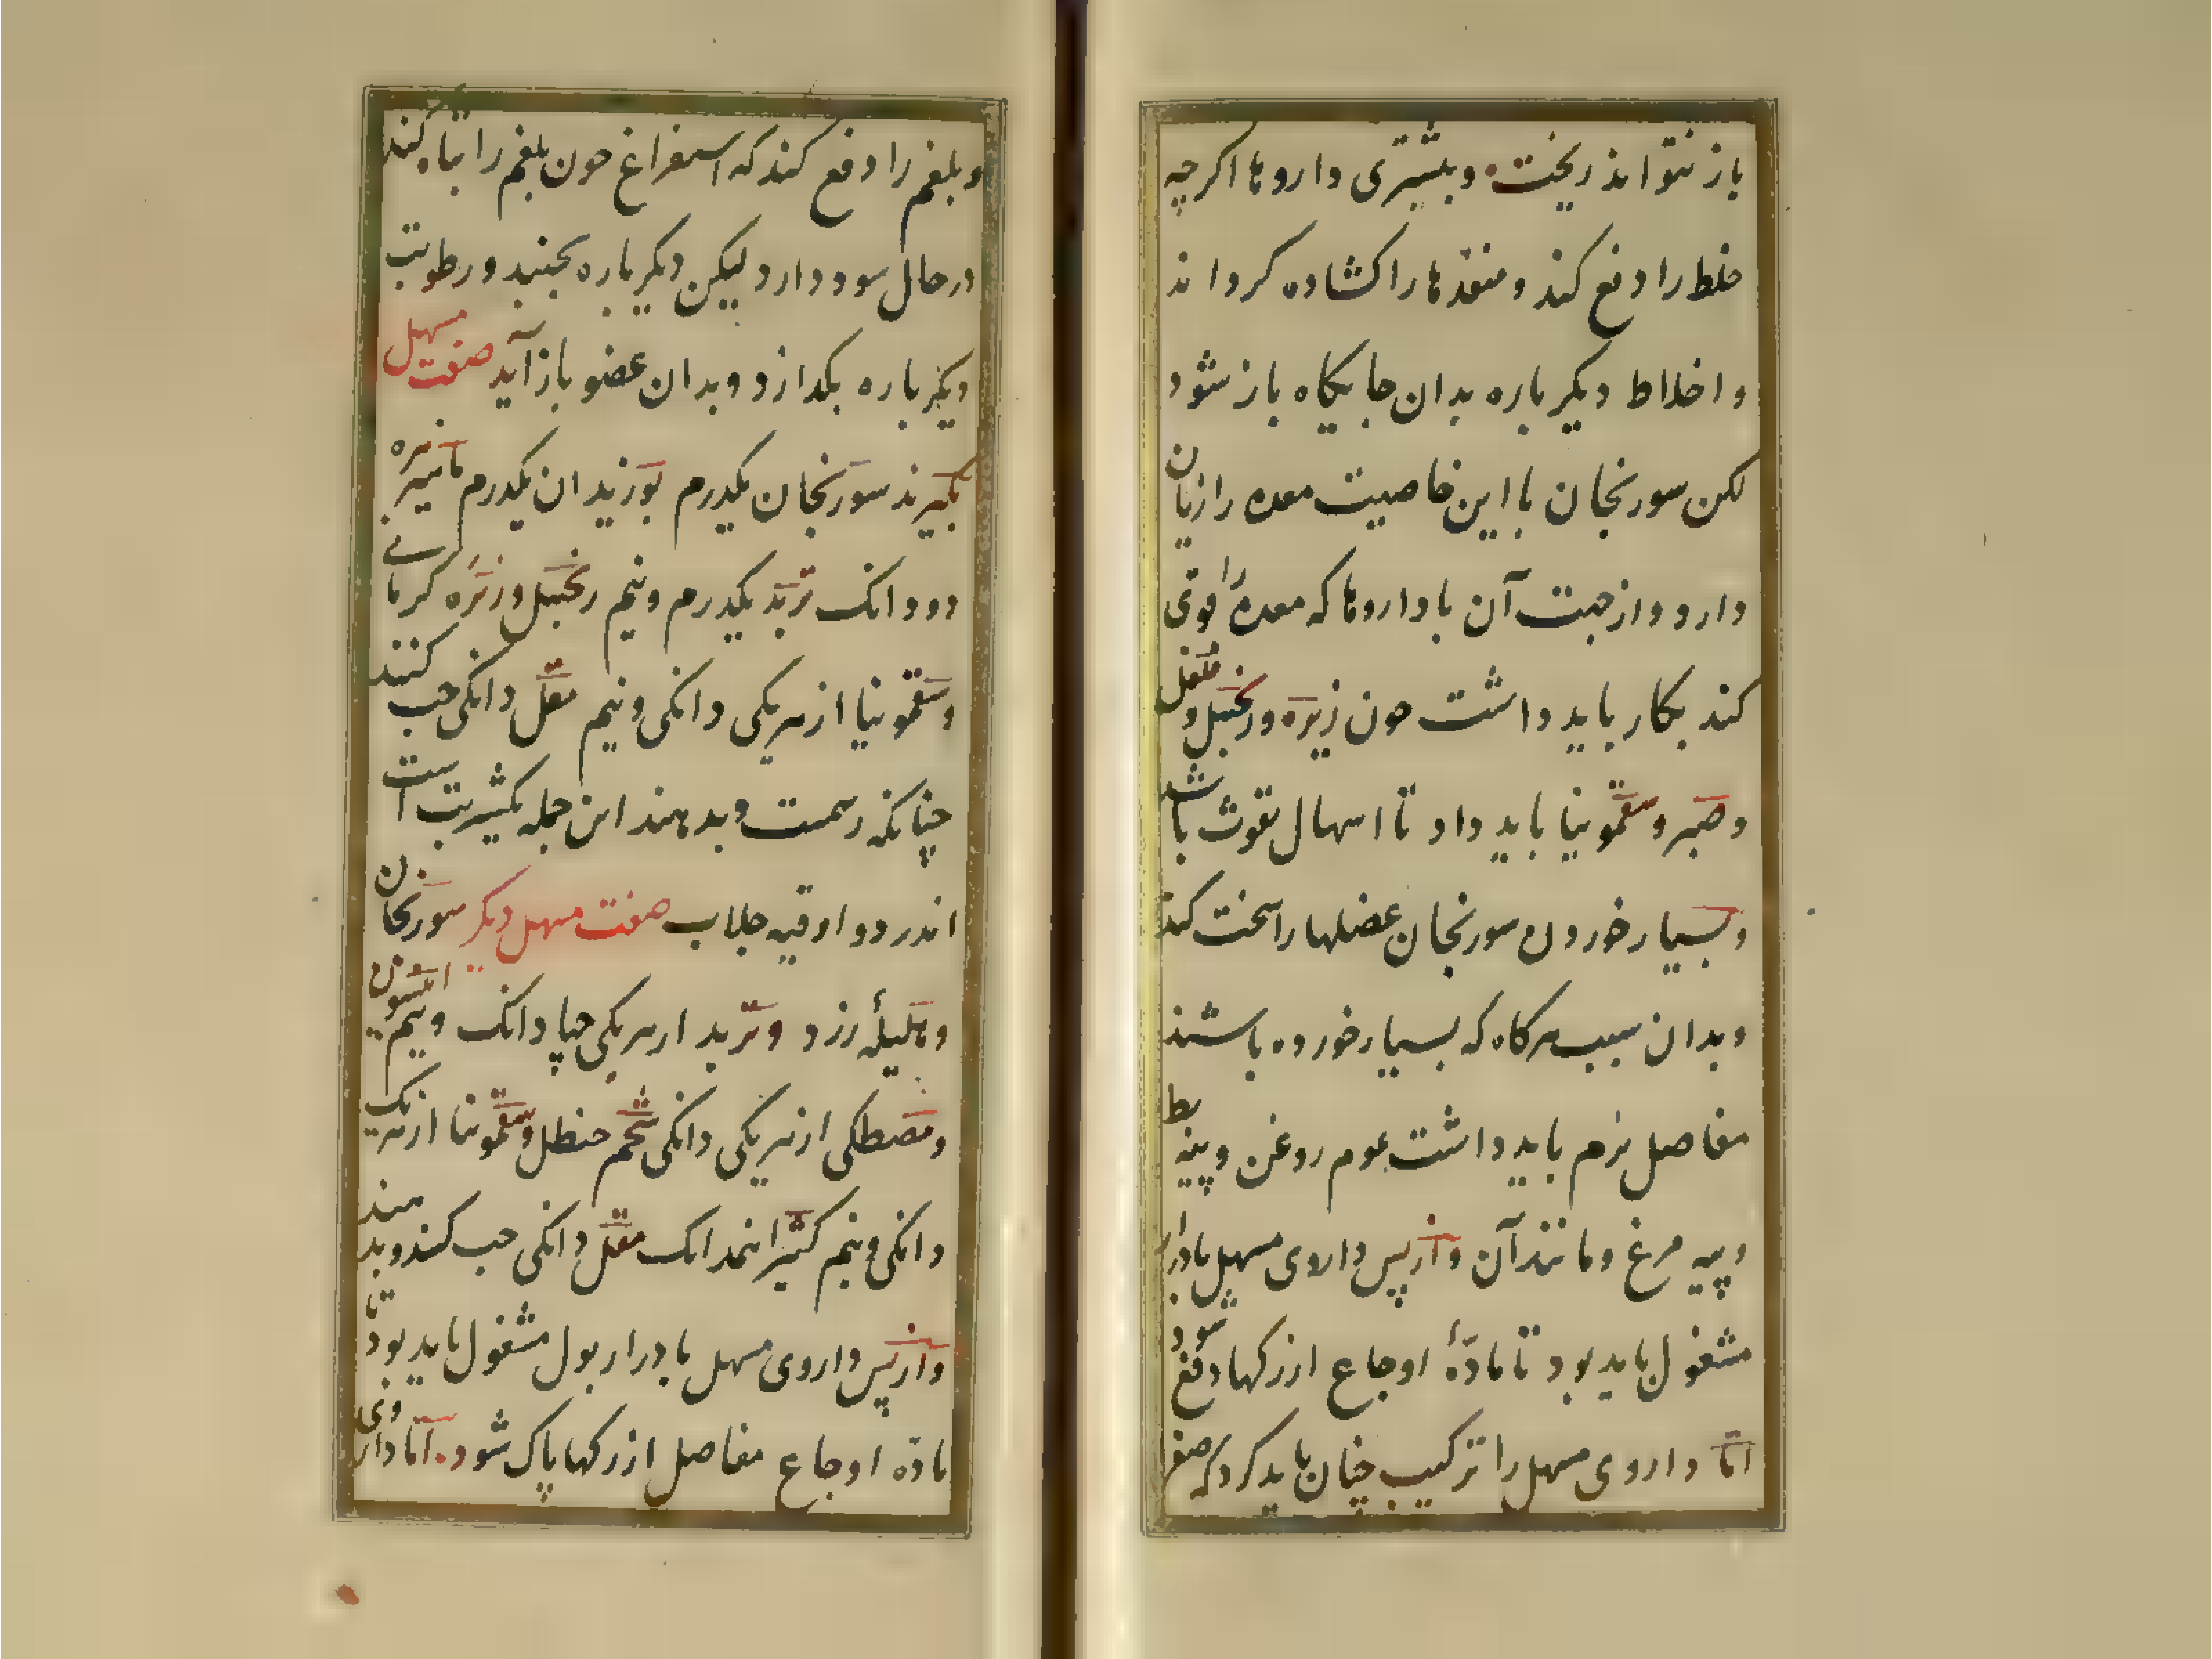 باز نتواند ریخت و بیشتری داروها اکرچه
خلط را دفع کند و منفذها را کشاده کرداند
و اخلاط دیکر باره بدان جایکاه باز شود
لکن سورنجان با این خاصیت معده را زیان
دارد و از جهت آن با داروها که معده را قوی
کند بکار باید داشت چون زیره و زنجبیل و فلفل
و صبر و سقمونیا باید داد تا اسهال بقوت باشد
و بسیار خوردن سورنجان عضلها را سخت کند
و بدان سبب هرکاه که بسیار خورده باشند
مفاصل نرم باید داشت بموم روغن و پیه بط
و پیه مرغ و مانند آن و از پس داروی مسهل بادرار
مشغول باید بود تا مادّهٔ اوجاع از رکها دفع شود
امّا داروی مسهل را ترکیب چنان باید کرد که صفرا
و بلغم را دفع کند که استفراغ چون بلغم را تباه کند
در حال سود دارد لیکن دیکر باره بجنبد و رطوبت
دیکر باره بکدازد و بدان عضو باز آید صفت مسهل
بکیرند سورنجان یکدرم بوزیدان یکدرم
دو دانک تربد یکدرم و نیم زنجبیل و زیره کرمانی
و سقمونیا از هر یکی دانکی و نیم مقل دانکی حب کنند
چنانکه رسمست و بدهند این جمله یکشربت است
اندر دو اوقیه جلاب صفت مسهل دیکر سورنجان
و هلیلهٔ زرد و تربد از هر یکی چهار دانک و نیم انیسون
و مصطکی از هر یکی دانکی شحم حنظل و سقمونیا از هر یک
دانکی و نیم کثیرا نیمدانک مقل دانکی حب کنند و بدهند
و از پس داروی مسهل بادرار بول مشغول باید بود تا
مادّه اوجاع مفاصل از رکها پاک شود امّا داروی